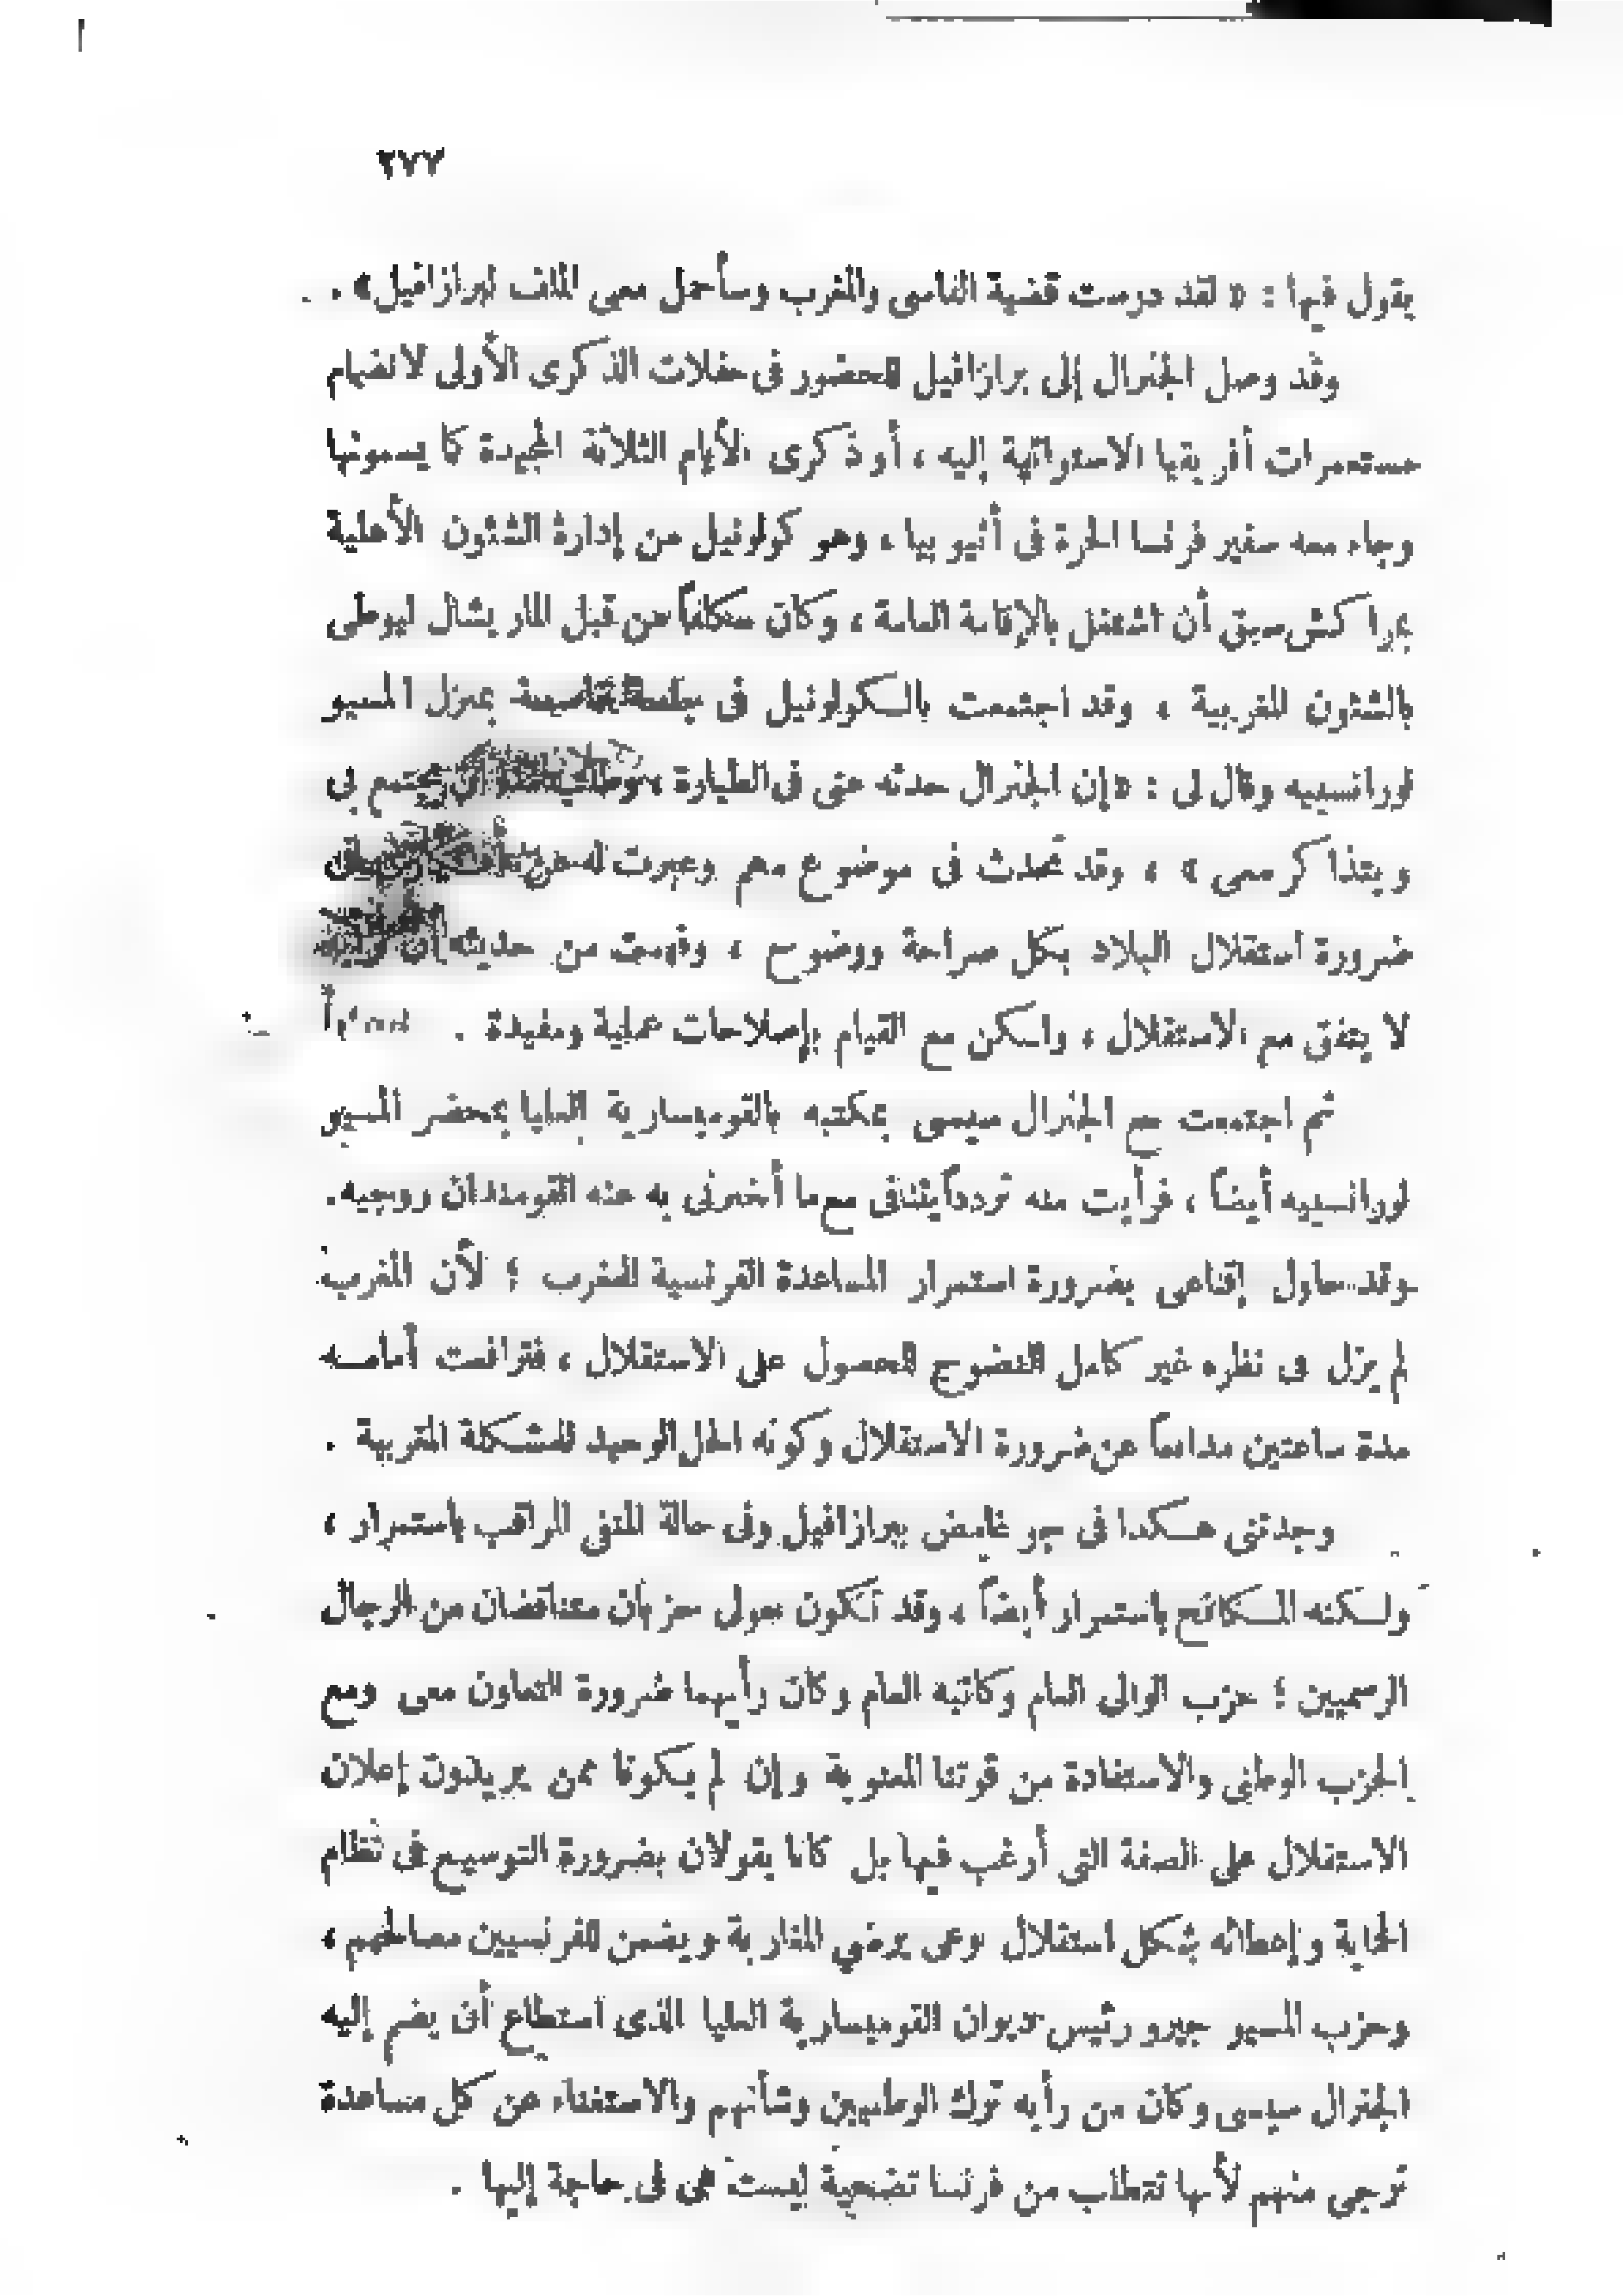 ٢٧٧
يقول فيها : « لقد درست قضية الفاسى والمغرب وسأحمل معى الملف لبرازافيل» .
وقد وصل الجنرال إلى برازافيل للحضور فى حفلات الذكرى الأولى لانضمام
مستعمرات أفريقيا الاستوائية إليه ، أو ذكرى الأيام الثلاثة المجيدة كما يسمونها
وجاء معه سفير فرنسا الحرة فى أثيوبيا ، وهو كولونيل من إدارة الشئون الأهلية
بمراكش سبق أن اشتغل بالإقامة العامة ، وكان مكلفاً من قبل المار يشال ليوطى
بالشئون المغربية ، وقد اجتمعت بالكولونيل فى جلسة خاصة بمنزل المسيو
لورانسييه وقال لى : «إن الجنرال حدثه عنى فى الطيارة ، وطلب منه أن يجتمع بى
ويتذاكر معى» ، وقد تحدث فى موضوع مهم وعبرت له عن
ضرورة استقلال البلاد بكل صراحة ووضوح ، وفهمت من حديثه أن رأيه
لا يتفق مع الاستقلال ، ولكن مع القيام بإصلاحات عملية ومفيدة .
ثم اجتمعت مع الجنرال سيسى بمكتبه بالقوميسارية العليا بمحضر المسيو
لورانسييه أيضاً ، فرأيت منه تردداً يتنافى مع ما أخبرنى به عنه القومندان روجيه .
وقد حاول إقناعى بضرورة استمرار المساعدة الفرنسية للمغرب ؛ لأن المغرب
لم يزل فى نظره غير كامل النضوج للحصول على الاستقلال ، فترافعت أمامه
مدة ساعتين مدافعاً عن ضرورة الاستقلال وكونه الحل الوحيد للمشكلة المغربية .
وجدتنى هكذا فى جو غامض ببرازافيل وفى حالة المنفى المراقب باستمرار ،
ولكنه المكافح باستمرار أيضاً ، وقد تكون حولى حزبان متناقضان من الرجال
الرسميين ؛ حزب الوالى العام وكاتبه العام وكان رأيهما ضرورة التعاون معى ومع
الحزب الوطنى والاستفادة من قوتنا المعنوية وإن لم يكونا ممن يريدون إعلان
الاستقلال على الصفة التى أرغب فيها بل كانا يقولان بضرورة التوسيع فى نظام
الحماية وإعطائه شكل استقلال نوعى يرضي المغاربة ويضمن للفرنسيين مصالحهم ،
وحزب المسيو جيرو رئيس ديوان القوميسارية العليا الذى استطاع أن يضم إليه
الجنرال سيسى وكان من رأيه ترك الوطنيين وشأنهم والاستغناء عن كل مساعدة
ترجى منهم لأنها تتطلب من فرنسا تضحية ليست هى فى حاجة إليها .